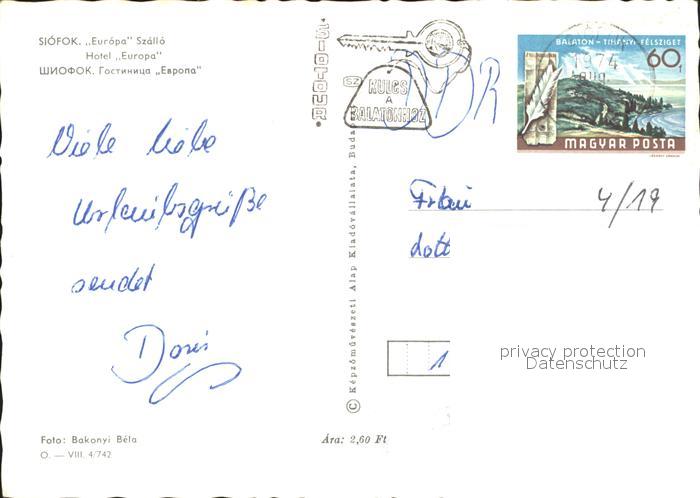 SIÓFOK. „Európa" Szálló
Hotel „Europa"
ШИОФОК. Гостиница „Европа"
Viele liebe
Urlaubsgrüße
sendet
Doris
Foto: Bakonyi Béla
O. — VIII. 4/742
© Képzőművészeti Alap Kiadóvállalata, Budap
Ára: 2,60 Ft
SIOTOUR
SZ
KULCS
A
BALATONHOZ
DDR
1974
BALATON - TIHANYI FÉLSZIGET
60f
MAGYAR POSTA
Frau
4/19
Lott
1
privacy protection
Datenschutz